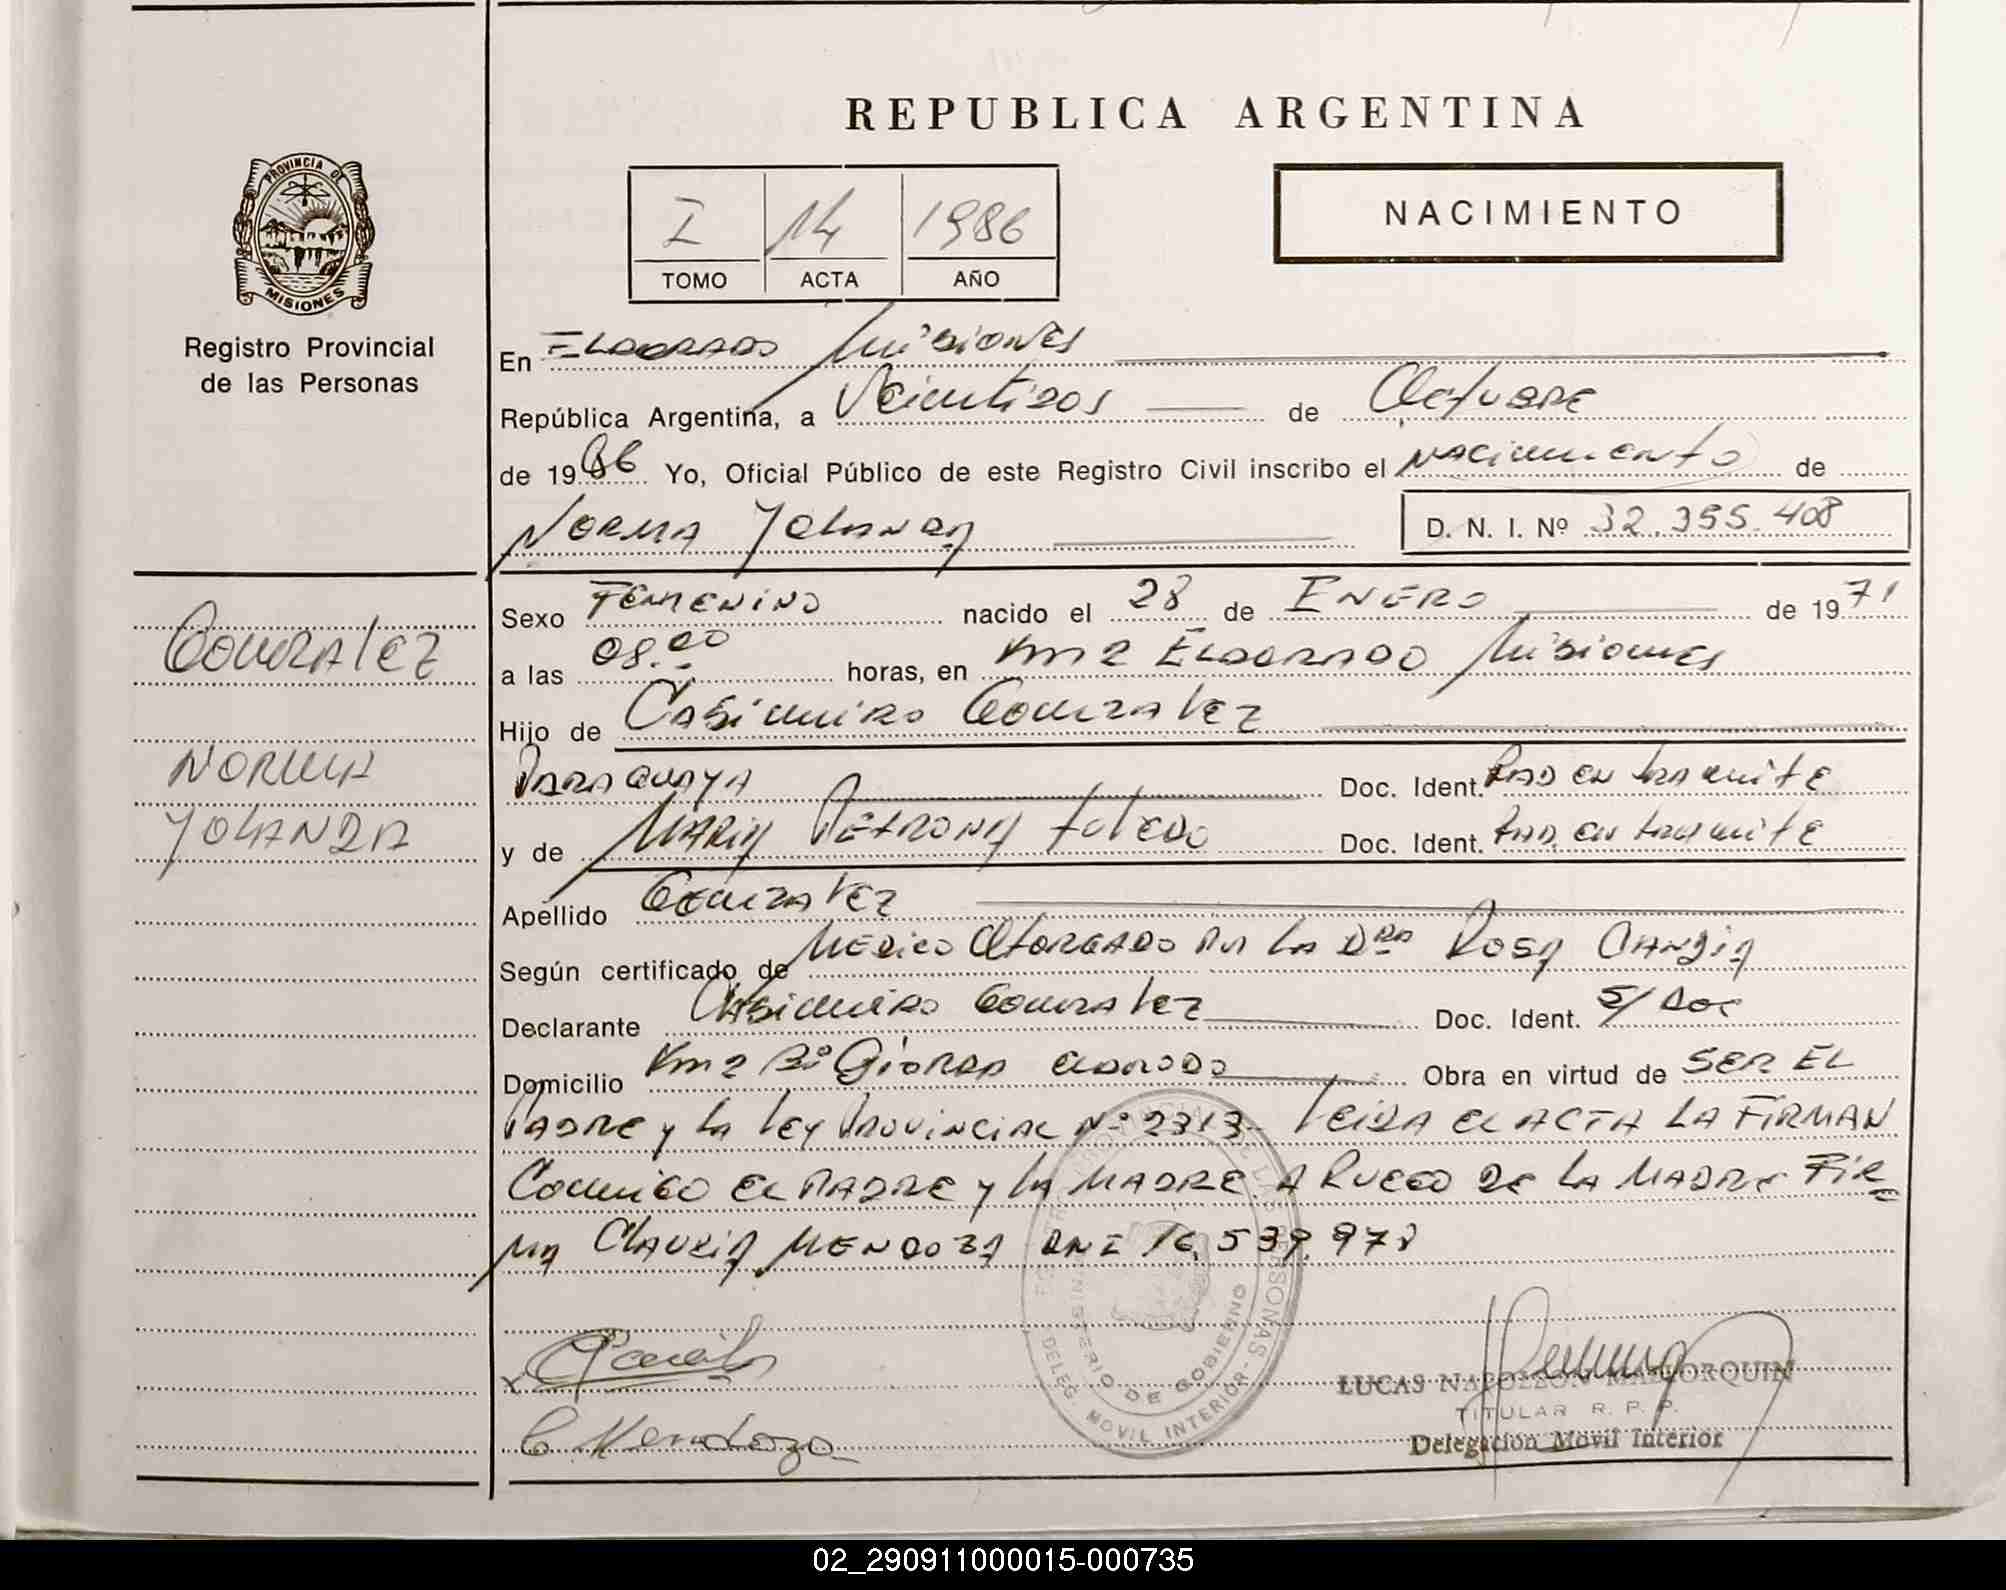 REPUBLICA ARGENTINA
PROVINCIA DE
MISIONES
Registro Provincial
de las Personas
I 14 1986
TOMO ACTA AÑO
NACIMIENTO
En Eldorado Misiones
República Argentina, a Veintidos de Octubre
de 1986 Yo, Oficial Público de este Registro Civil inscribo el nacimiento de
Norma Yolanda
D. N. I. Nº 32.355.408
Gonzalez
Norma
Yolanda
Sexo Femenino nacido el 28 de Enero de 1971
a las 08.00 horas, en Km 2 Eldorado Misiones
Hijo de Casimiro Gonzalez
Paraguaya Doc. Ident. Rad en tramite
y de Maria Petrona Toledo Doc. Ident. Rad. en tramite
Apellido Gonzalez
Según certificado de Medico otorgado por la Dra Rosa Candia
Declarante Casimiro Gonzalez Doc. Ident. S/ Doc
Domicilio Km 2 Bº Eldorado Obra en virtud de ser el
Padre y la Ley Provincial Nº 2313- Leida el acta la firman
Conmigo el padre y la madre. A ruego de la madre fir
ma Claudia Mendoza DNI 16.539.978
REGISTRO PROVINCIAL DE LAS PERSONAS -
MINISTERIO DE GOBIERNO
DELEG. MOVIL INTERIOR
C Mendoza
LUCAS NAPOLEON MALLORQUIN
TITULAR R. P. P.
Delegación Movil Interior
02_290911000015-000735